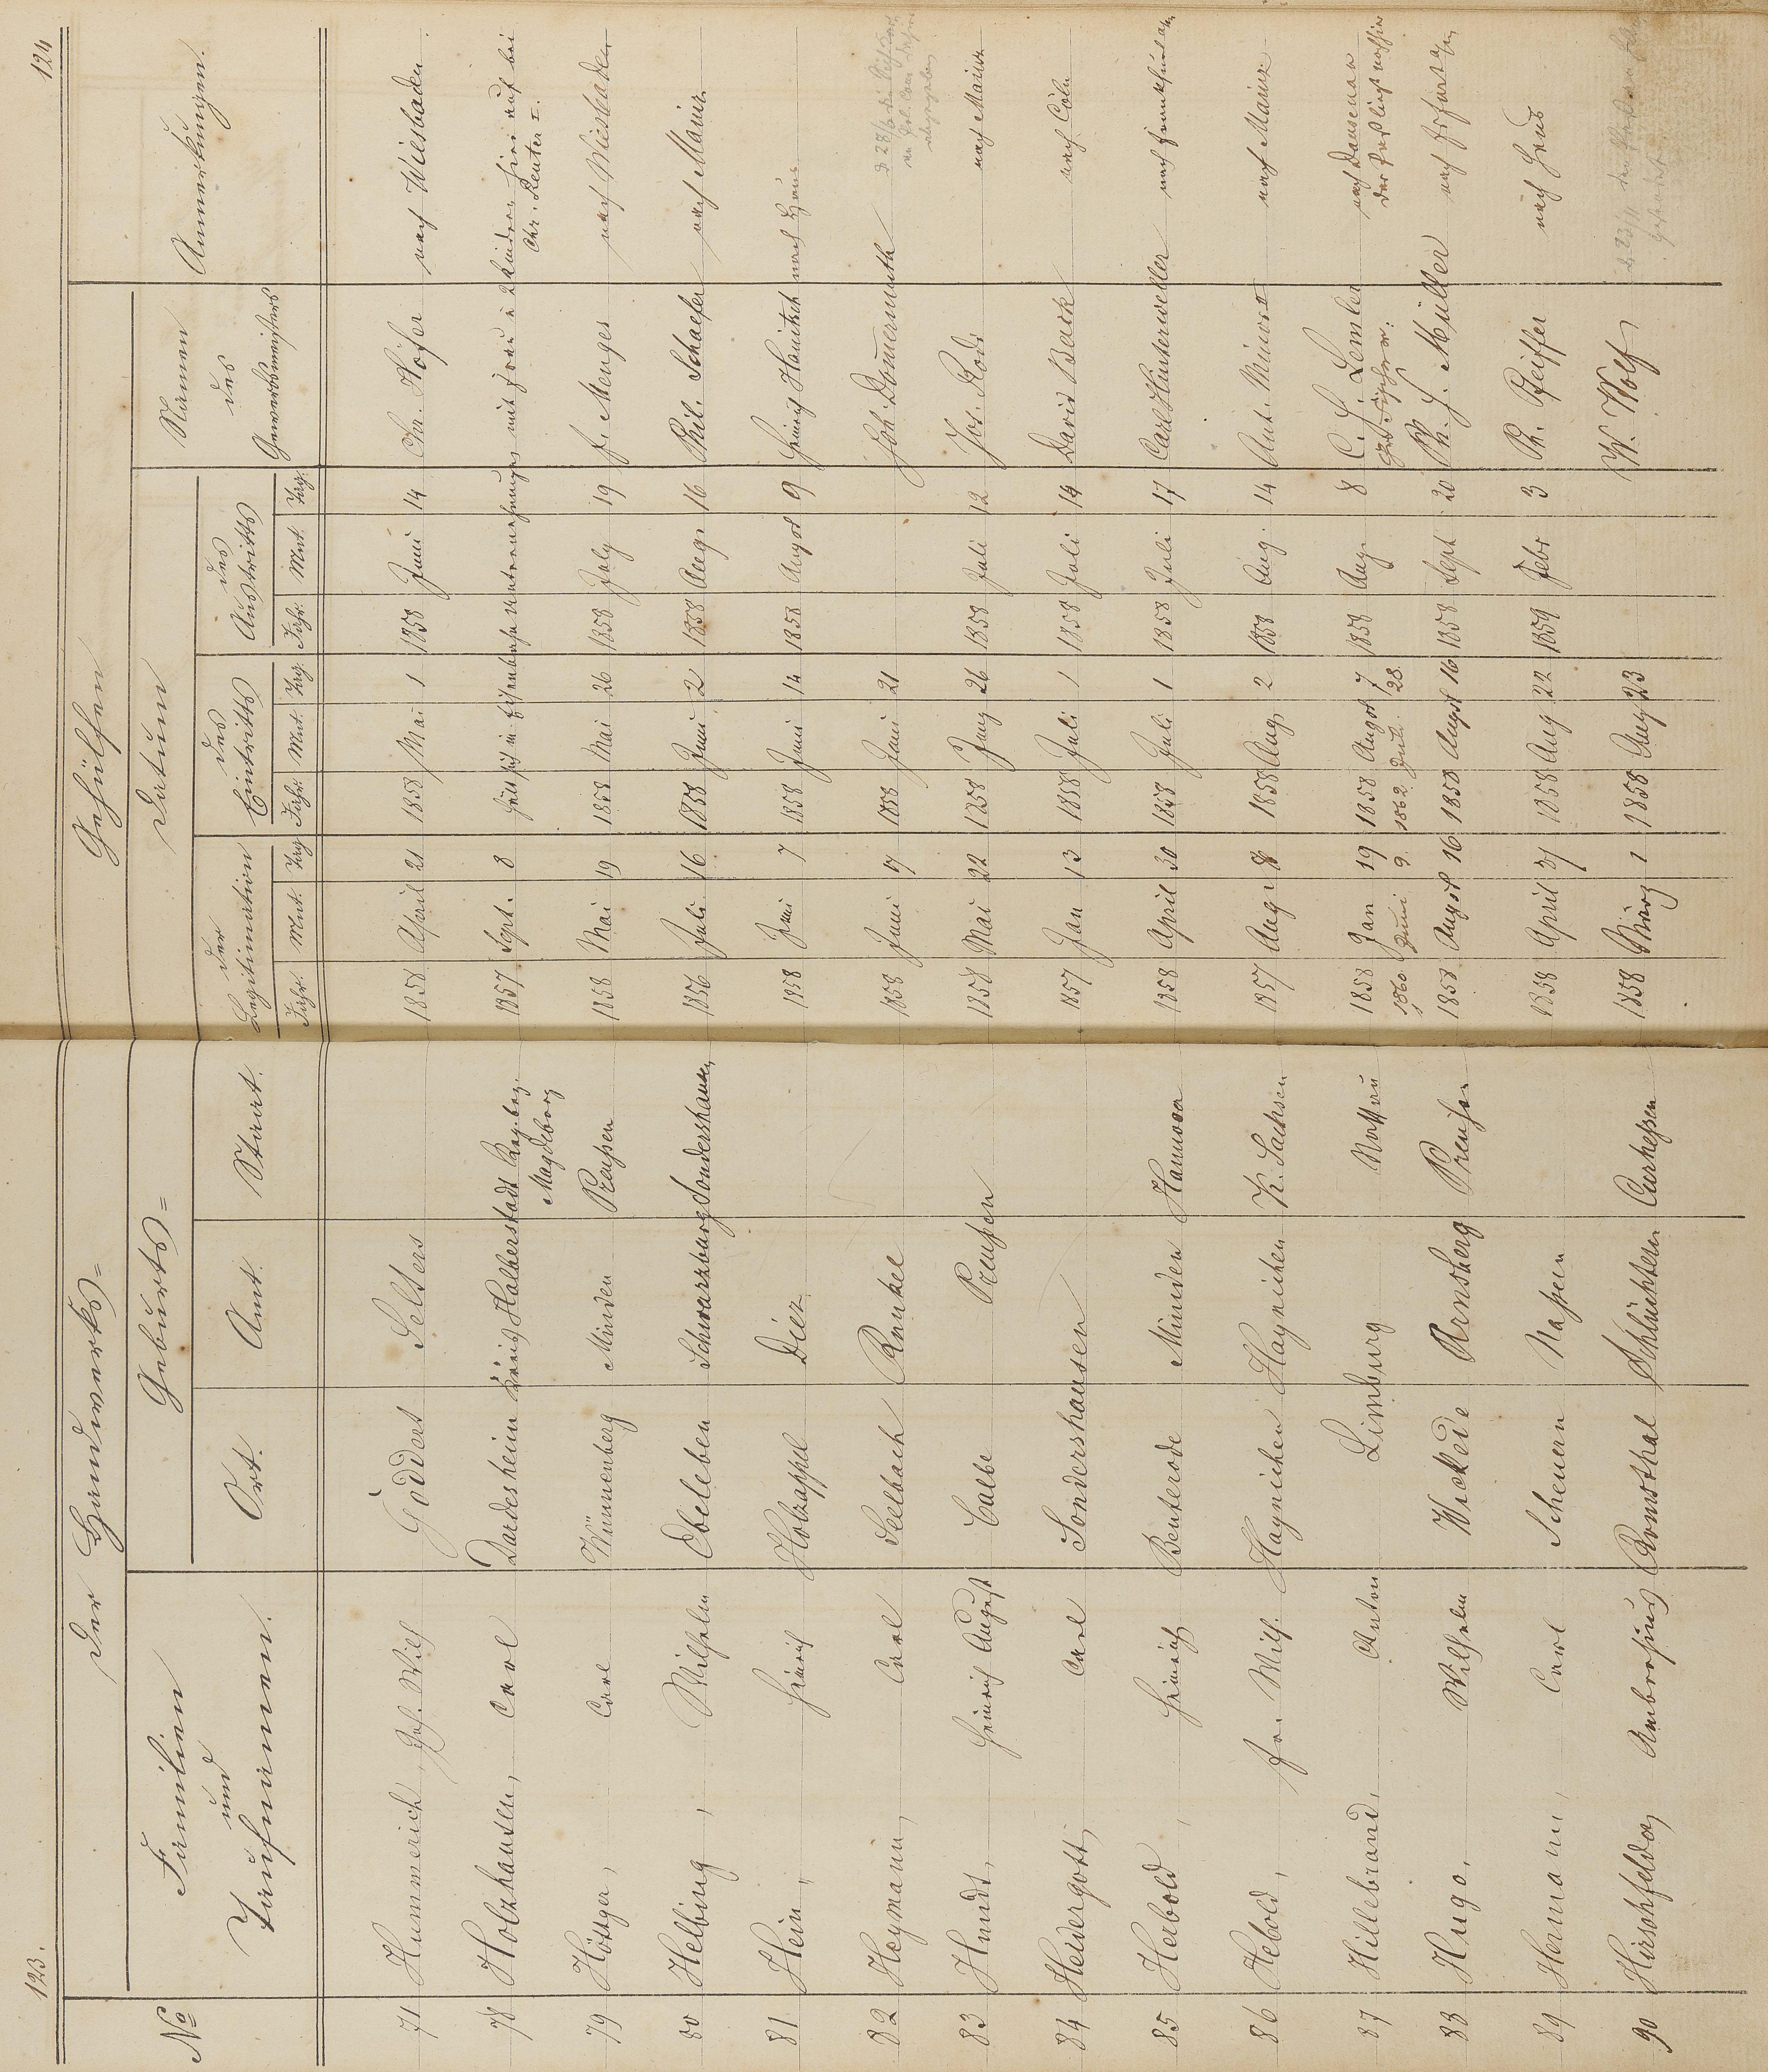 123.
124
Der Handwerks=
Gehülfen
No
Familien
und
Taufnamen.
Geburts=
Ort.
Amt.
Staat.
Datum
der
Legitimation
Jahr. Mnt. Tag.
des
Eintritts
Jahr. Mnt. Tag.
des
Austritts
Jahr. Mnt. Tag.
Namen
des
Gewerbsmeisters
Anmerkungen.
Hummerich, Wilh Goddert Selters 1858 April 21 1858 Mai 1 1858 Juni 14 Chr. Höfer nach Wiesbaden
78 Holzhausen, Carl Dardesheim Königl. Halberstadt Reg. bez. 1857 Sept. 8 mit Frau u 2 Kinder hier auf bei
Magdeburg Chr. Reuter I.
79 Höttger, Carl Wünnenberg Minden Preußen 1858 Mai 19 1858 Mai 26 1858 July 19 F. Menges nach Wiesbaden
80 Helbing, Wilhelm Ebeleben Schwarzburg Sondershausen 1856 Juli 16 1858 Juni 2 1858 Aug. 16 Phil. Schaefer nach Mainz
81 Hein, Heinrich Holzappel Diez 1858 Juni 7 1858 Juni 14 1858 August 9 Heinrich nach Haus
82 Heymann, Carl Seelbach Runkel 1858 Juni 17 1858 Juni 21 Joh. Dommermuth
83 Hundt, Heinrich August Calbe Preußen 1858 Mai 22 1858 Juny 26 1858 Juli 12 Jos. Rode nach Mainz
84 Heidergott, Carl Sondershausen 1857 Jan 13 1858 Juli 1 1858 Juli 14 David Beuck nach Cöln
85 Herbold, Heinrich Benterode Münden Hannover 1858 April 30 1858 Juli 1 1858 Juli 17 Carl Hinterweller nach Frankfurt a/m
86 Hebold, Fr. Wilh. Haynichen Haynichen K. Sachsen 1857 Aug. 8 1858 Aug 2 1858 Aug. 14 Ant. Minors nach Mainz
87 Hillebrand, Anton Limburg Nassau 1858 Jan 19 1858 August 7 1858 Aug. 8 C. H. Lemler nach Dausenau
1860 Juni 9. 1862 Juli 28.
88 Hugo, Wilhelm Wickede Arnsberg Preußen 1858 August 16 1858 August 16 1858 Sept. 20 Ph. H. Müller nach
89 Hermann, Carl Scheuern Naßau 1858 April 1858 Aug 22 1859 Febr 3 Ph. Pfeiffer nach Haus
90 Hirschfelder, Ambrosius Romsthal Schlüchtern Curheßen 1858 März 1 1858 Aug 23 W. Wolf